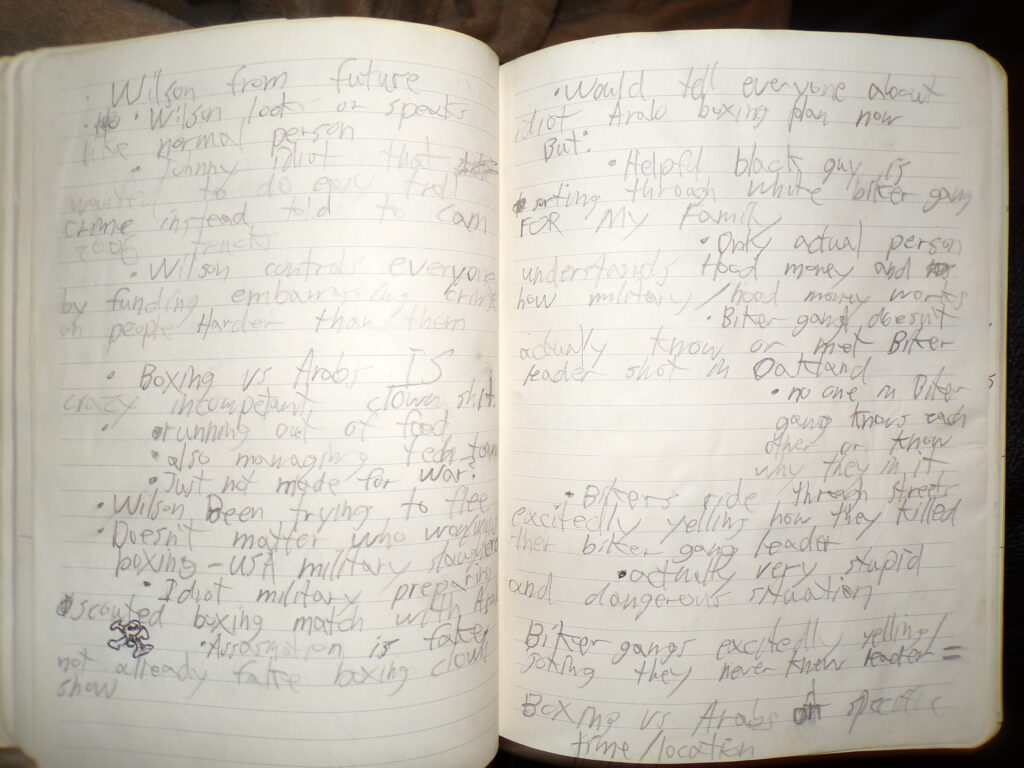 • Wilson from future
• Wilson looks or speaks
like normal person
• Johnny idiot that
wanted to do easy troll
crime instead told to Cam
2006 trucks
• Wilson controls everyone
by funding embarrassing crime
on people Harder than them
• Boxing vs Arabs IS
crazy incompetant clown shit.
• running out of food
• also managing Tech team
• Just not made for war?
• Wilson Been trying to flee
• Doesn't matter who
boxing - USA military
• Idiot military preparing
scouted boxing match with
is fake
not already fake boxing clown
show
• Would tell everyone about
idiot Arab boxing plan now
But:
• Helpful black guy is
sorting through white biker gang
FOR My Family
• Only actual person
understands Hood money and
how military/hood money works
• Biker gang doesn't
actualy know or met Biker
leader shot in Oakland
• no one in Biker
gang knows each
other or know
why they in it
• Bikers ride through streets
excitedly yelling how they killed
their biker gang leader
• actually very stupid
and dangerous situation
Biker gangs excitedly yelling/
joking they never knew leader =
Boxing vs Arabs at specific
time/location